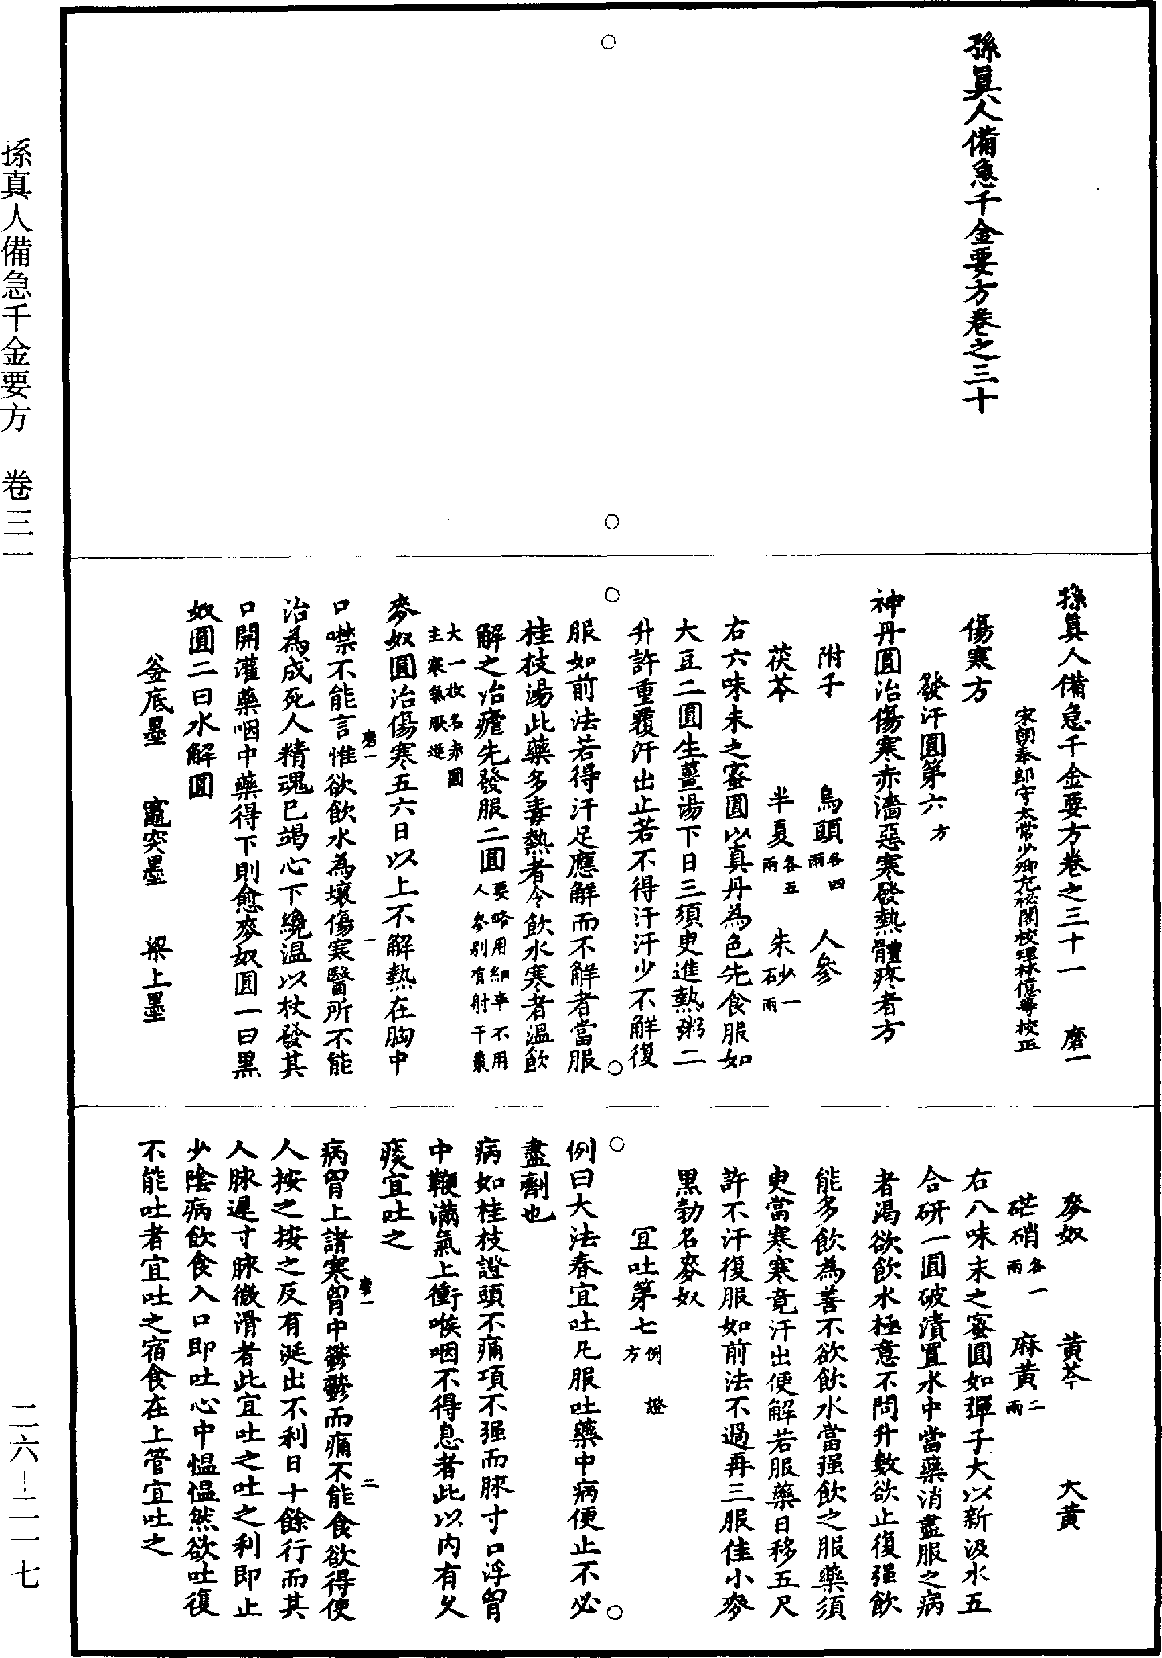 孫真人備急千金要方卷之三十
孫真人備急千金要方卷之三十一　磨一
宋朝奉郎守太常少卿充祕閣校理林億等校正
傷寒方
發汗圓第六方
神丹圓治傷寒赤濇惡寒發熱體疼者方
附子　烏頭各四兩　人參
茯苓　半夏各五兩　朱砂一兩
右六味末之蜜圓以真丹為色先食服如
大豆二圓生薑湯下日三須臾進熱粥二
升許重覆汗出止若不得汗汗少不解復
服如前法若得汗足應解而不解者當服
桂枝湯此藥多毒熱者令飲水寒者溫飲
解之治瘧先發服二圓要略用細辛不用人參別有射干棗
大一枚名赤圓主寒氣厥逆
麥奴圓治傷寒五六日以上不解熱在胸中
口噤不能言惟欲飲水為壞傷寒醫所不能
治為成死人精魂已竭心下纔溫以杖發其
口開灌藥咽中藥得下則愈麥奴圓一曰黑
奴圓二曰水解圓
釜底墨　竈突墨　梁上墨
麥奴　黃芩　大黃
芒硝各一兩　麻黃二兩
右八味末之蜜圓如彈子大以新汲水五
合研一圓破漬置水中當藥消盡服之病
者渴欲飲水極意不問升數欲止復強飲
能多飲為善不欲飲水當強飲之服藥須
臾當寒寒竟汗出便解若服藥日移五尺
許不汗復服如前法不過再三服佳小麥
黑勃名麥奴
宜吐第七例　證　方
例曰大法春宜吐凡服吐藥中病便止不必
盡劑也
病如桂枝證頭不痛項不强而脉寸口浮胷
中鞕滿氣上衝喉咽不得息者此以內有久
痰宜吐之
病胷上諸寒胷中鬱鬱而痛不能食欲得使
人按之按之反有涎出不利日十餘行而其
人脉遲寸脉微滑者此宜吐之吐之利即止
少陰病飲食入口即吐心中慍慍然欲吐復
不能吐者宜吐之宿食在上管宜吐之
孫真人備急千金要方　卷三一
二六–二一七